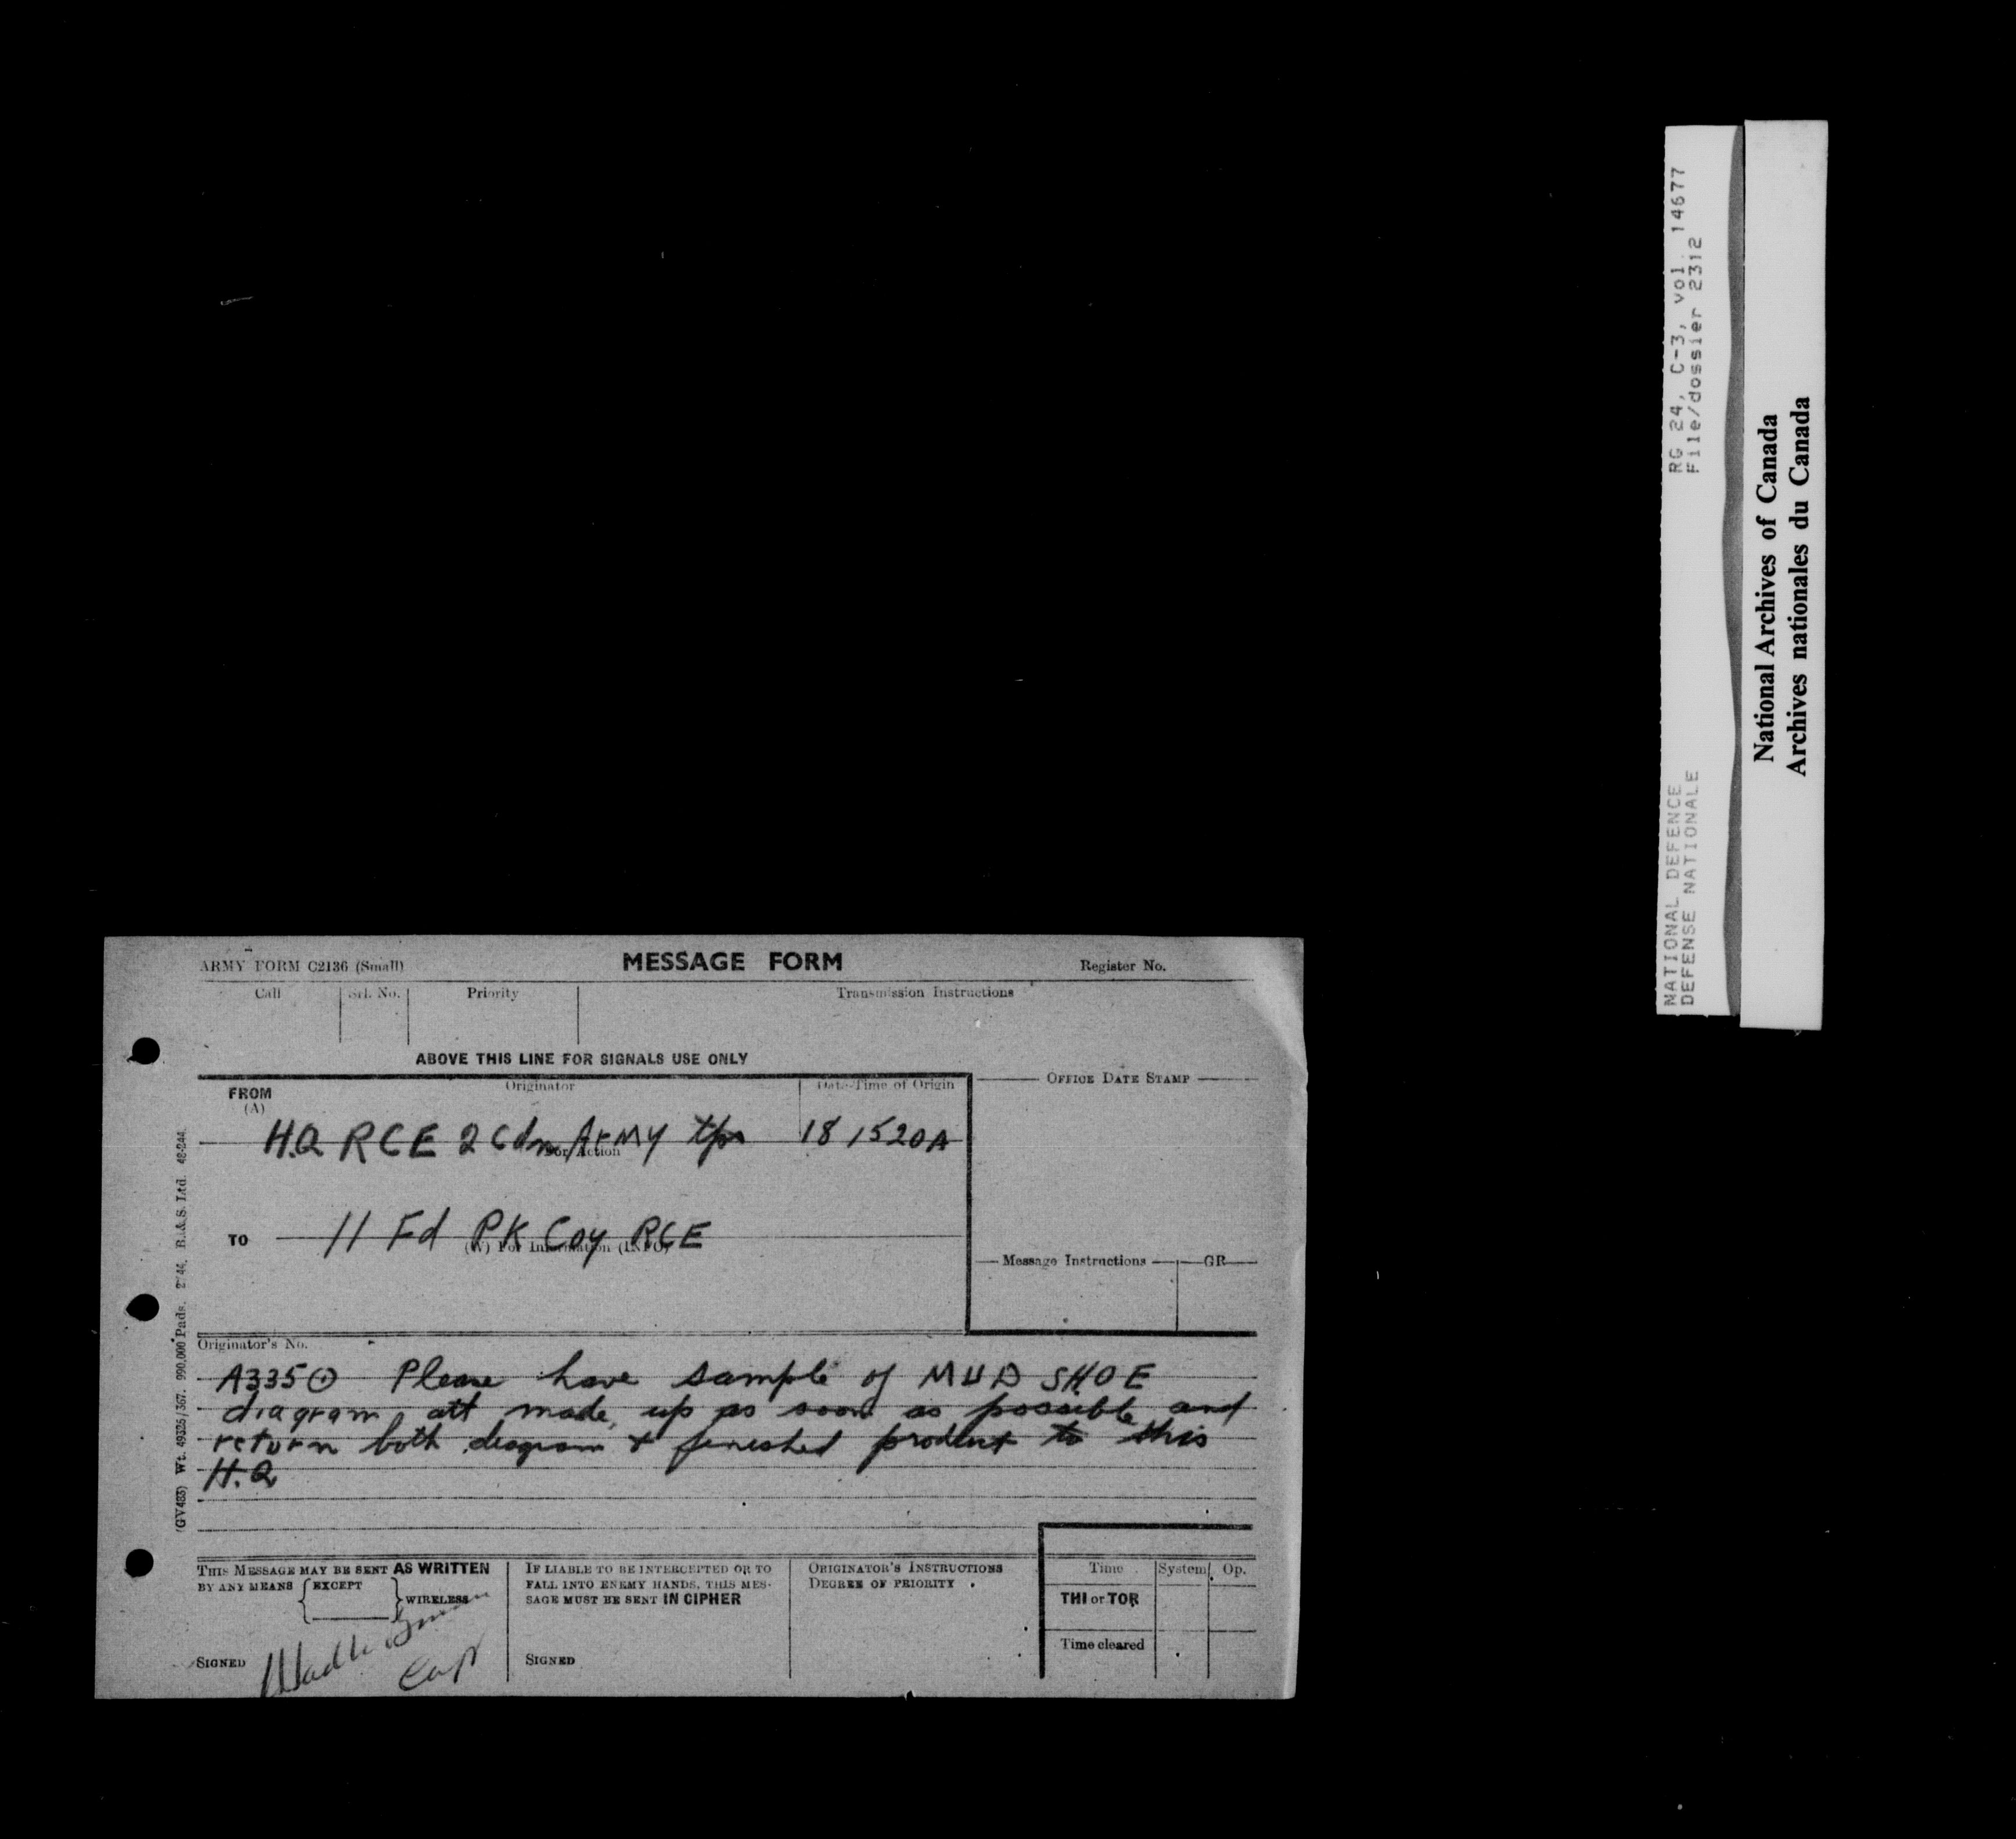 ARMY FORM C2136 (Small)
MESSAGE FORM
Register No.
Call
Srl. No.
Priority
Transmission Instructions
ABOVE THIS LINE FOR SIGNALS USE ONLY
FROM
(A)
Originator
Date-Time of Origin
OFFICE DATE STAMP
H.Q RCE 2 Cdn Army tps
18 1520A
For Action
TO
11 Fd PK Coy RCE
(W) For Information (INFO)
Message Instructions
GR
Originator's No.
A335 ⊙ Please have sample of MUD SHOE
diagram att made up as soon as possible and
return both diagram + finished product to this
H.Q
THIS MESSAGE MAY BE SENT AS WRITTEN
BY ANY MEANS { EXCEPT } WIRELESS
SIGNED
Capt
IF LIABLE TO BE INTERCEPTED OR TO
FALL INTO ENEMY HANDS, THIS MES-
SAGE MUST BE SENT IN CIPHER
SIGNED
ORIGINATOR'S INSTRUCTIONS
DEGREE OF PRIORITY
Time
System
Op.
THI or TOR
Time cleared
(GV483) Wt. 49325/367. 990,000 Pads. 2/44. B.&S. Ltd.
NATIONAL DEFENCE RG 24, C-3, vol. 14677
DEFENSE NATIONALE File/dossier 2312
National Archives of Canada
Archives nationales du Canada